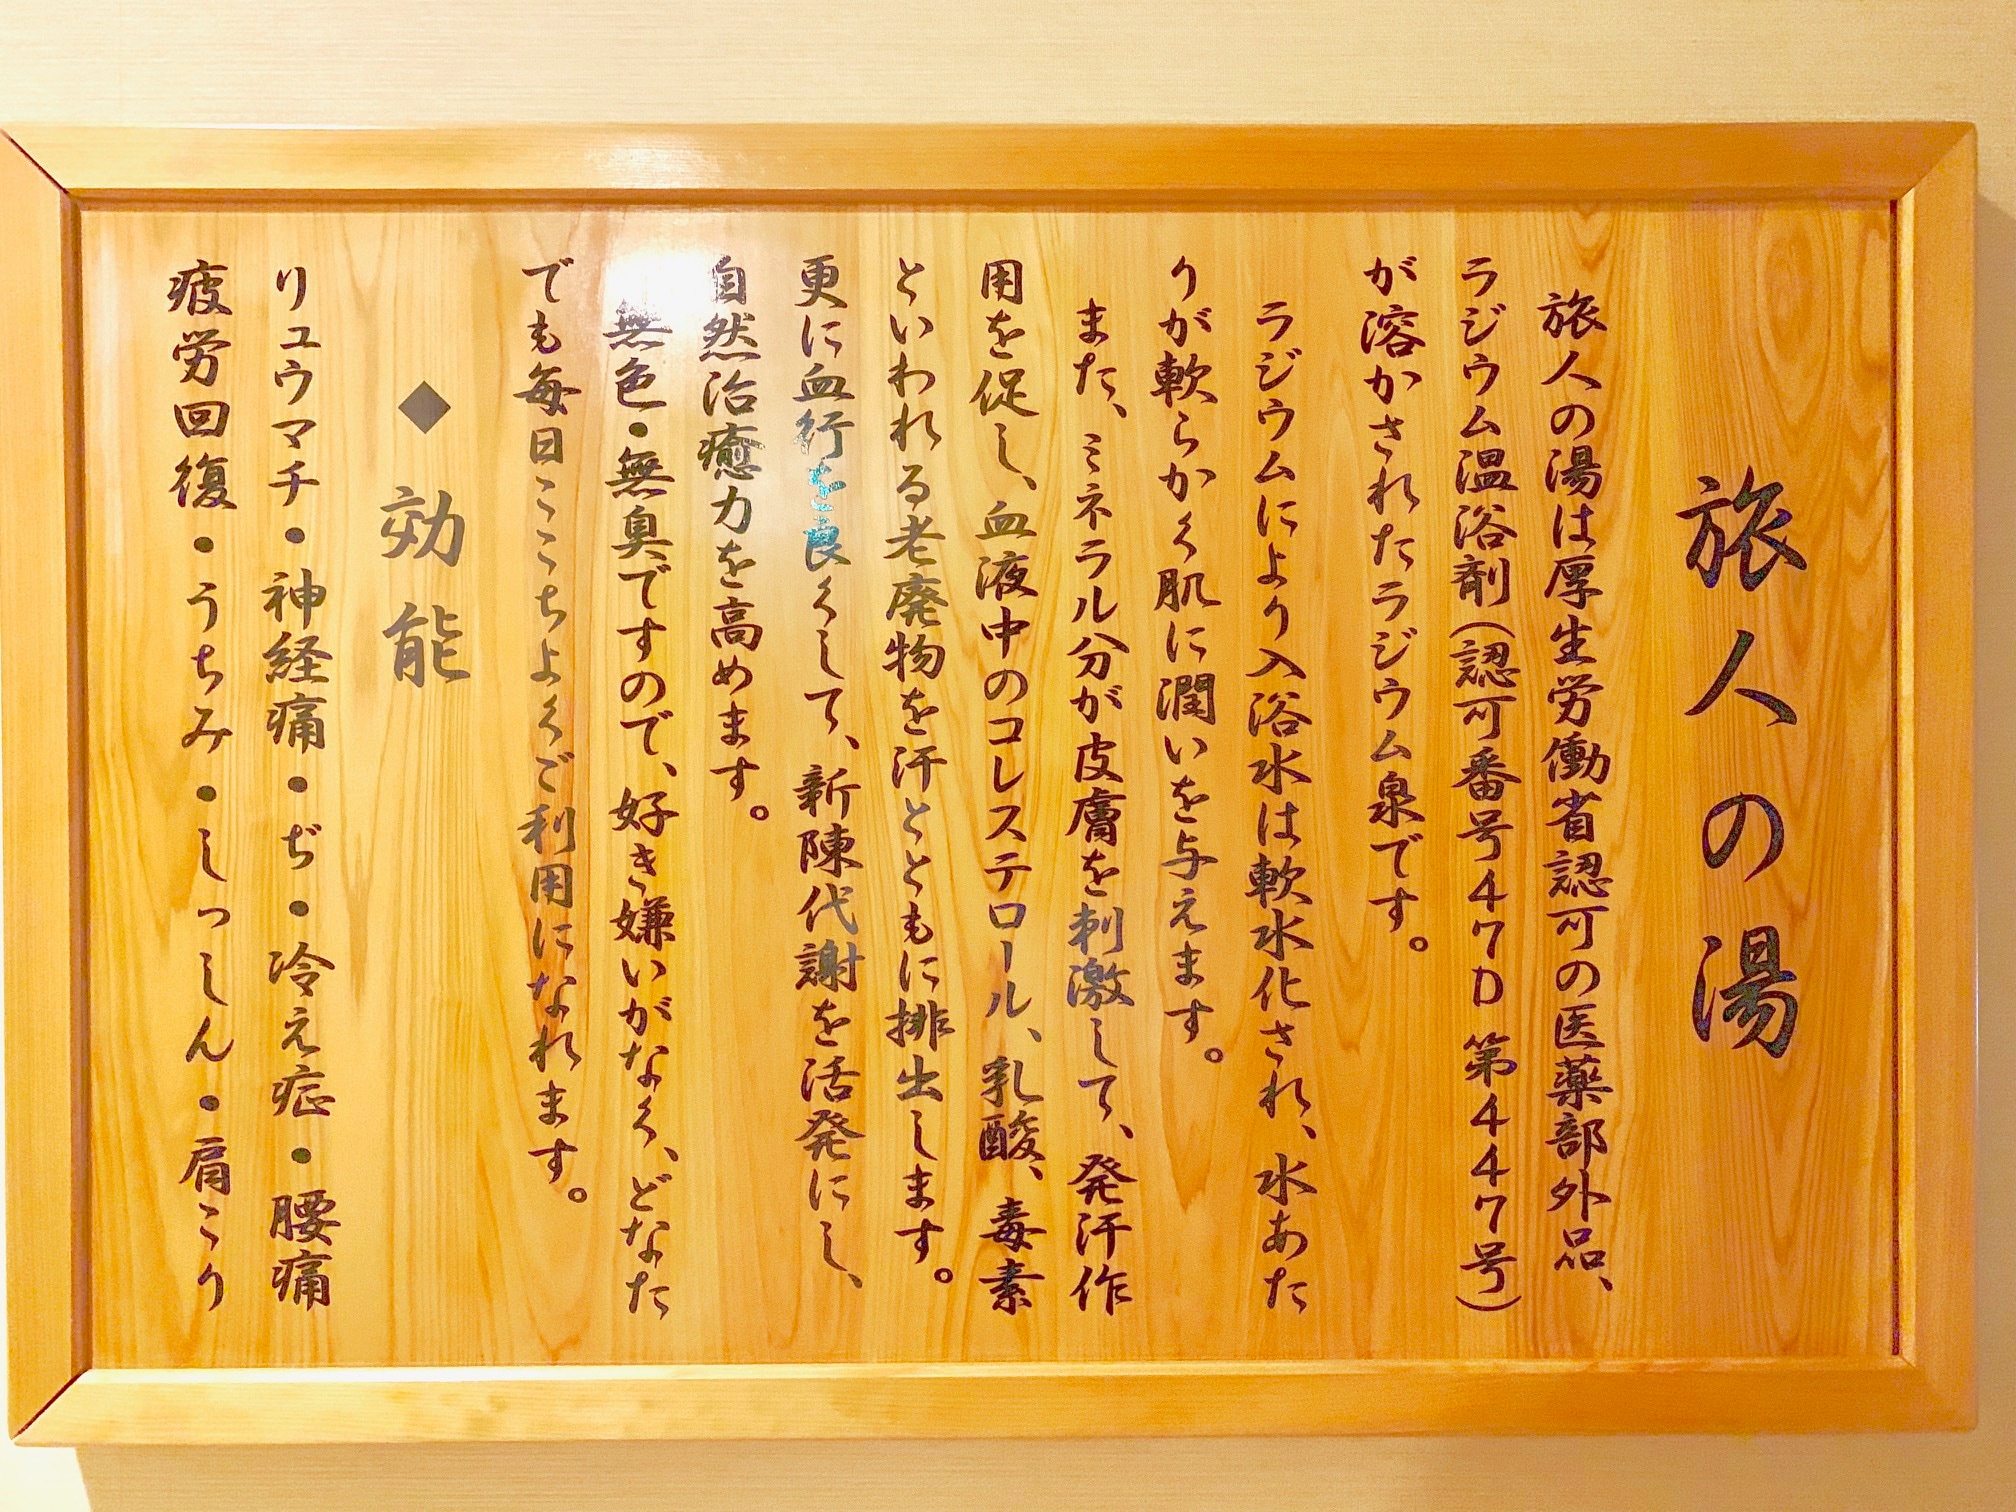 旅人の湯
旅人の湯は厚生労働省認可の医薬部外品、
ラジウム温浴剤(認可番号47D第447号)
が溶かされたラジウム泉です。
ラジウムにより入浴水は軟水化され、水あた
りが軟らかく肌に潤いを与えます。
また、ミネラル分が皮膚を刺激して、発汗作
用を促し、血液中のコレステロール、乳酸、毒素
といわれる老廃物を汗とともに排出します。
更に血行を良くして、新陳代謝を活発にし、
自然治癒力を高めます。
無色・無臭ですので、好き嫌いがなく、どなた
でも毎日ここちよくご利用になれます。
◆効能
リュウマチ・神経痛・ぢ・冷え症・腰痛
疲労回復・うちみ・しっしん・肩こり